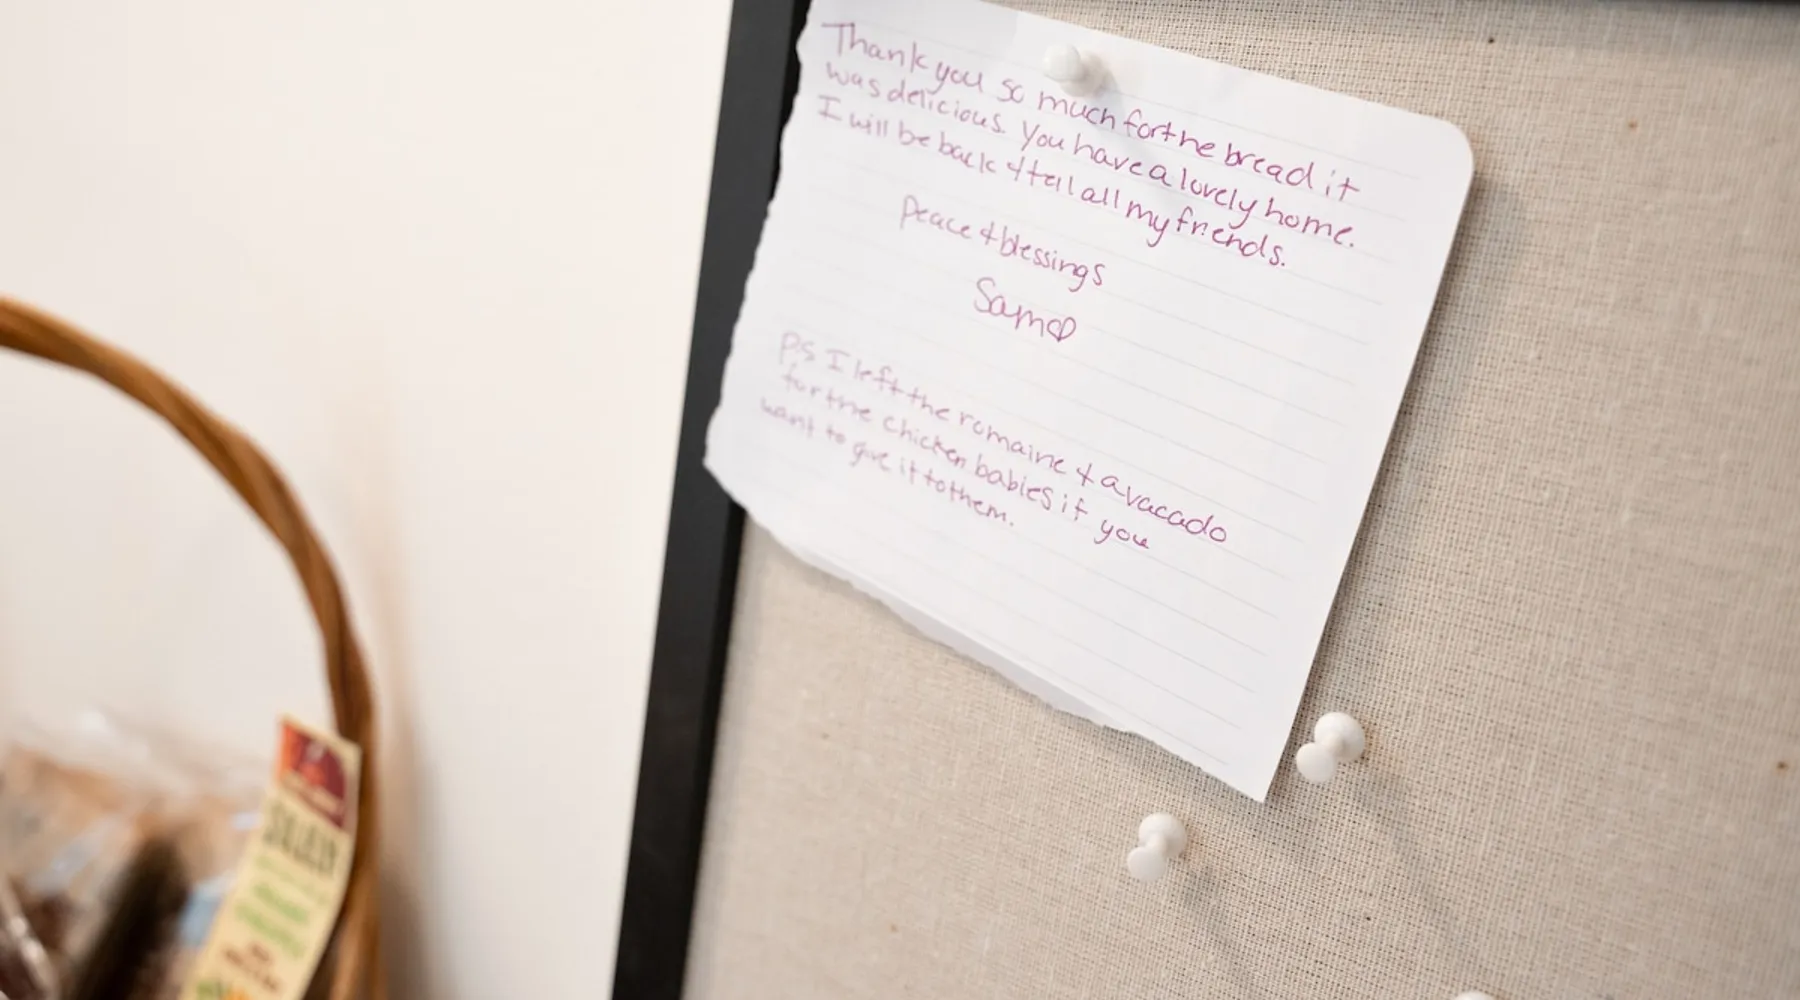 Thank you so much for the bread it
was delicious. You have a lovely home.
I will be back & tell all my friends.
Peace & blessings
Sam♡
P.S I left the romaine & avacado
for the chicken babies if you
want to give it to them.